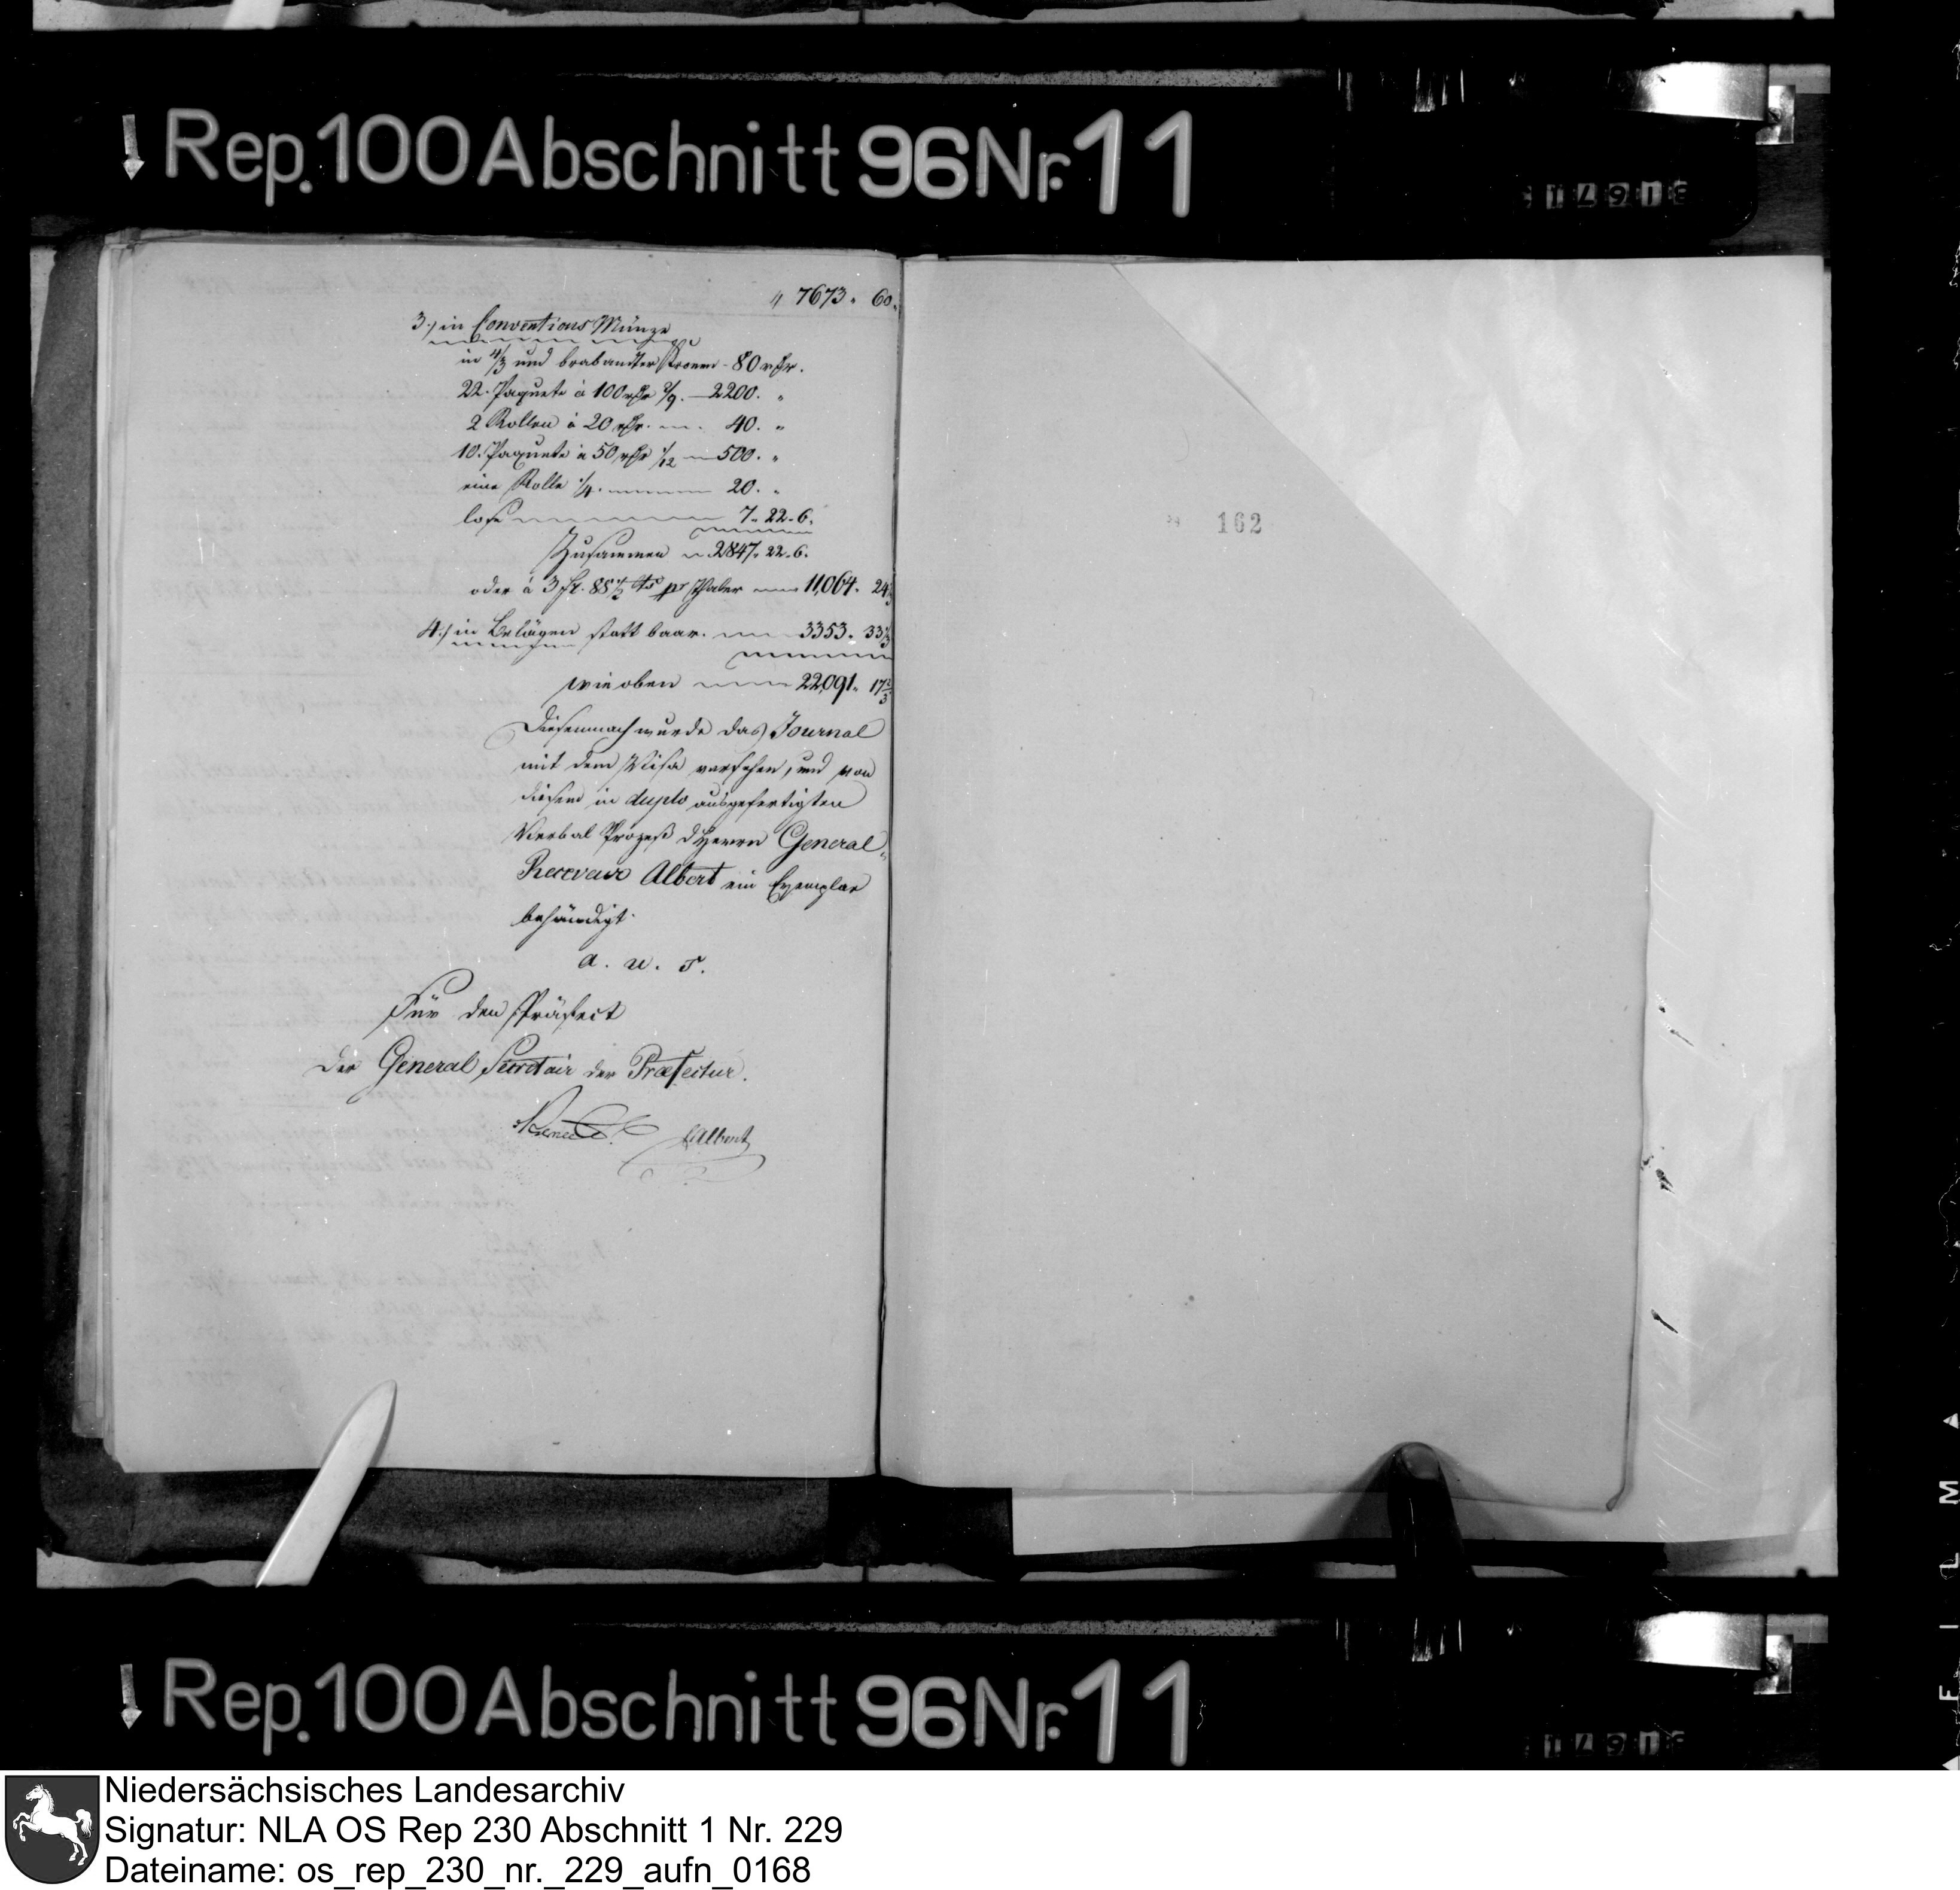 Rep. 100 Abschnitt 96 Nr. 11
" 7673. 60.
3.) in Conventions Münze
in 4/3 und brabandter Kronen - 80 rthr.
22. Paquete à 100 rthr 2/9. — 2200. "
2 Rollen à 20 rthr. — 40. "
10. Paquete à 50 rthr 1/12 — 500. "
eine Rolle 1/4. — 20. "
lose — 7. 22. 6.
Zusammen — 2847. 22. 6.
oder à 3 fr. 88 1/2 cts pr Thaler — 11,064. 24
4.) in Belägen statt baar. — 3353. 33 1/3
wie oben — 22,091. 17 2/3
Diesemnach wurde das Journal
mit dem Visa versehen, und von
diesem in duplo ausgefertigten
Verbal Prozeß d Herrn General-
Receveur Albert ein Exemplar
behändigt.
a. u. s.
Für den Präfect
Der General Secretair der Præfectur.
Albert
162
Rep. 100 Abschnitt 96 Nr. 11
FILM
Niedersächsisches Landesarchiv
Signatur: NLA OS Rep 230 Abschnitt 1 Nr. 229
Dateiname: os_rep_230_nr._229_aufn_0168